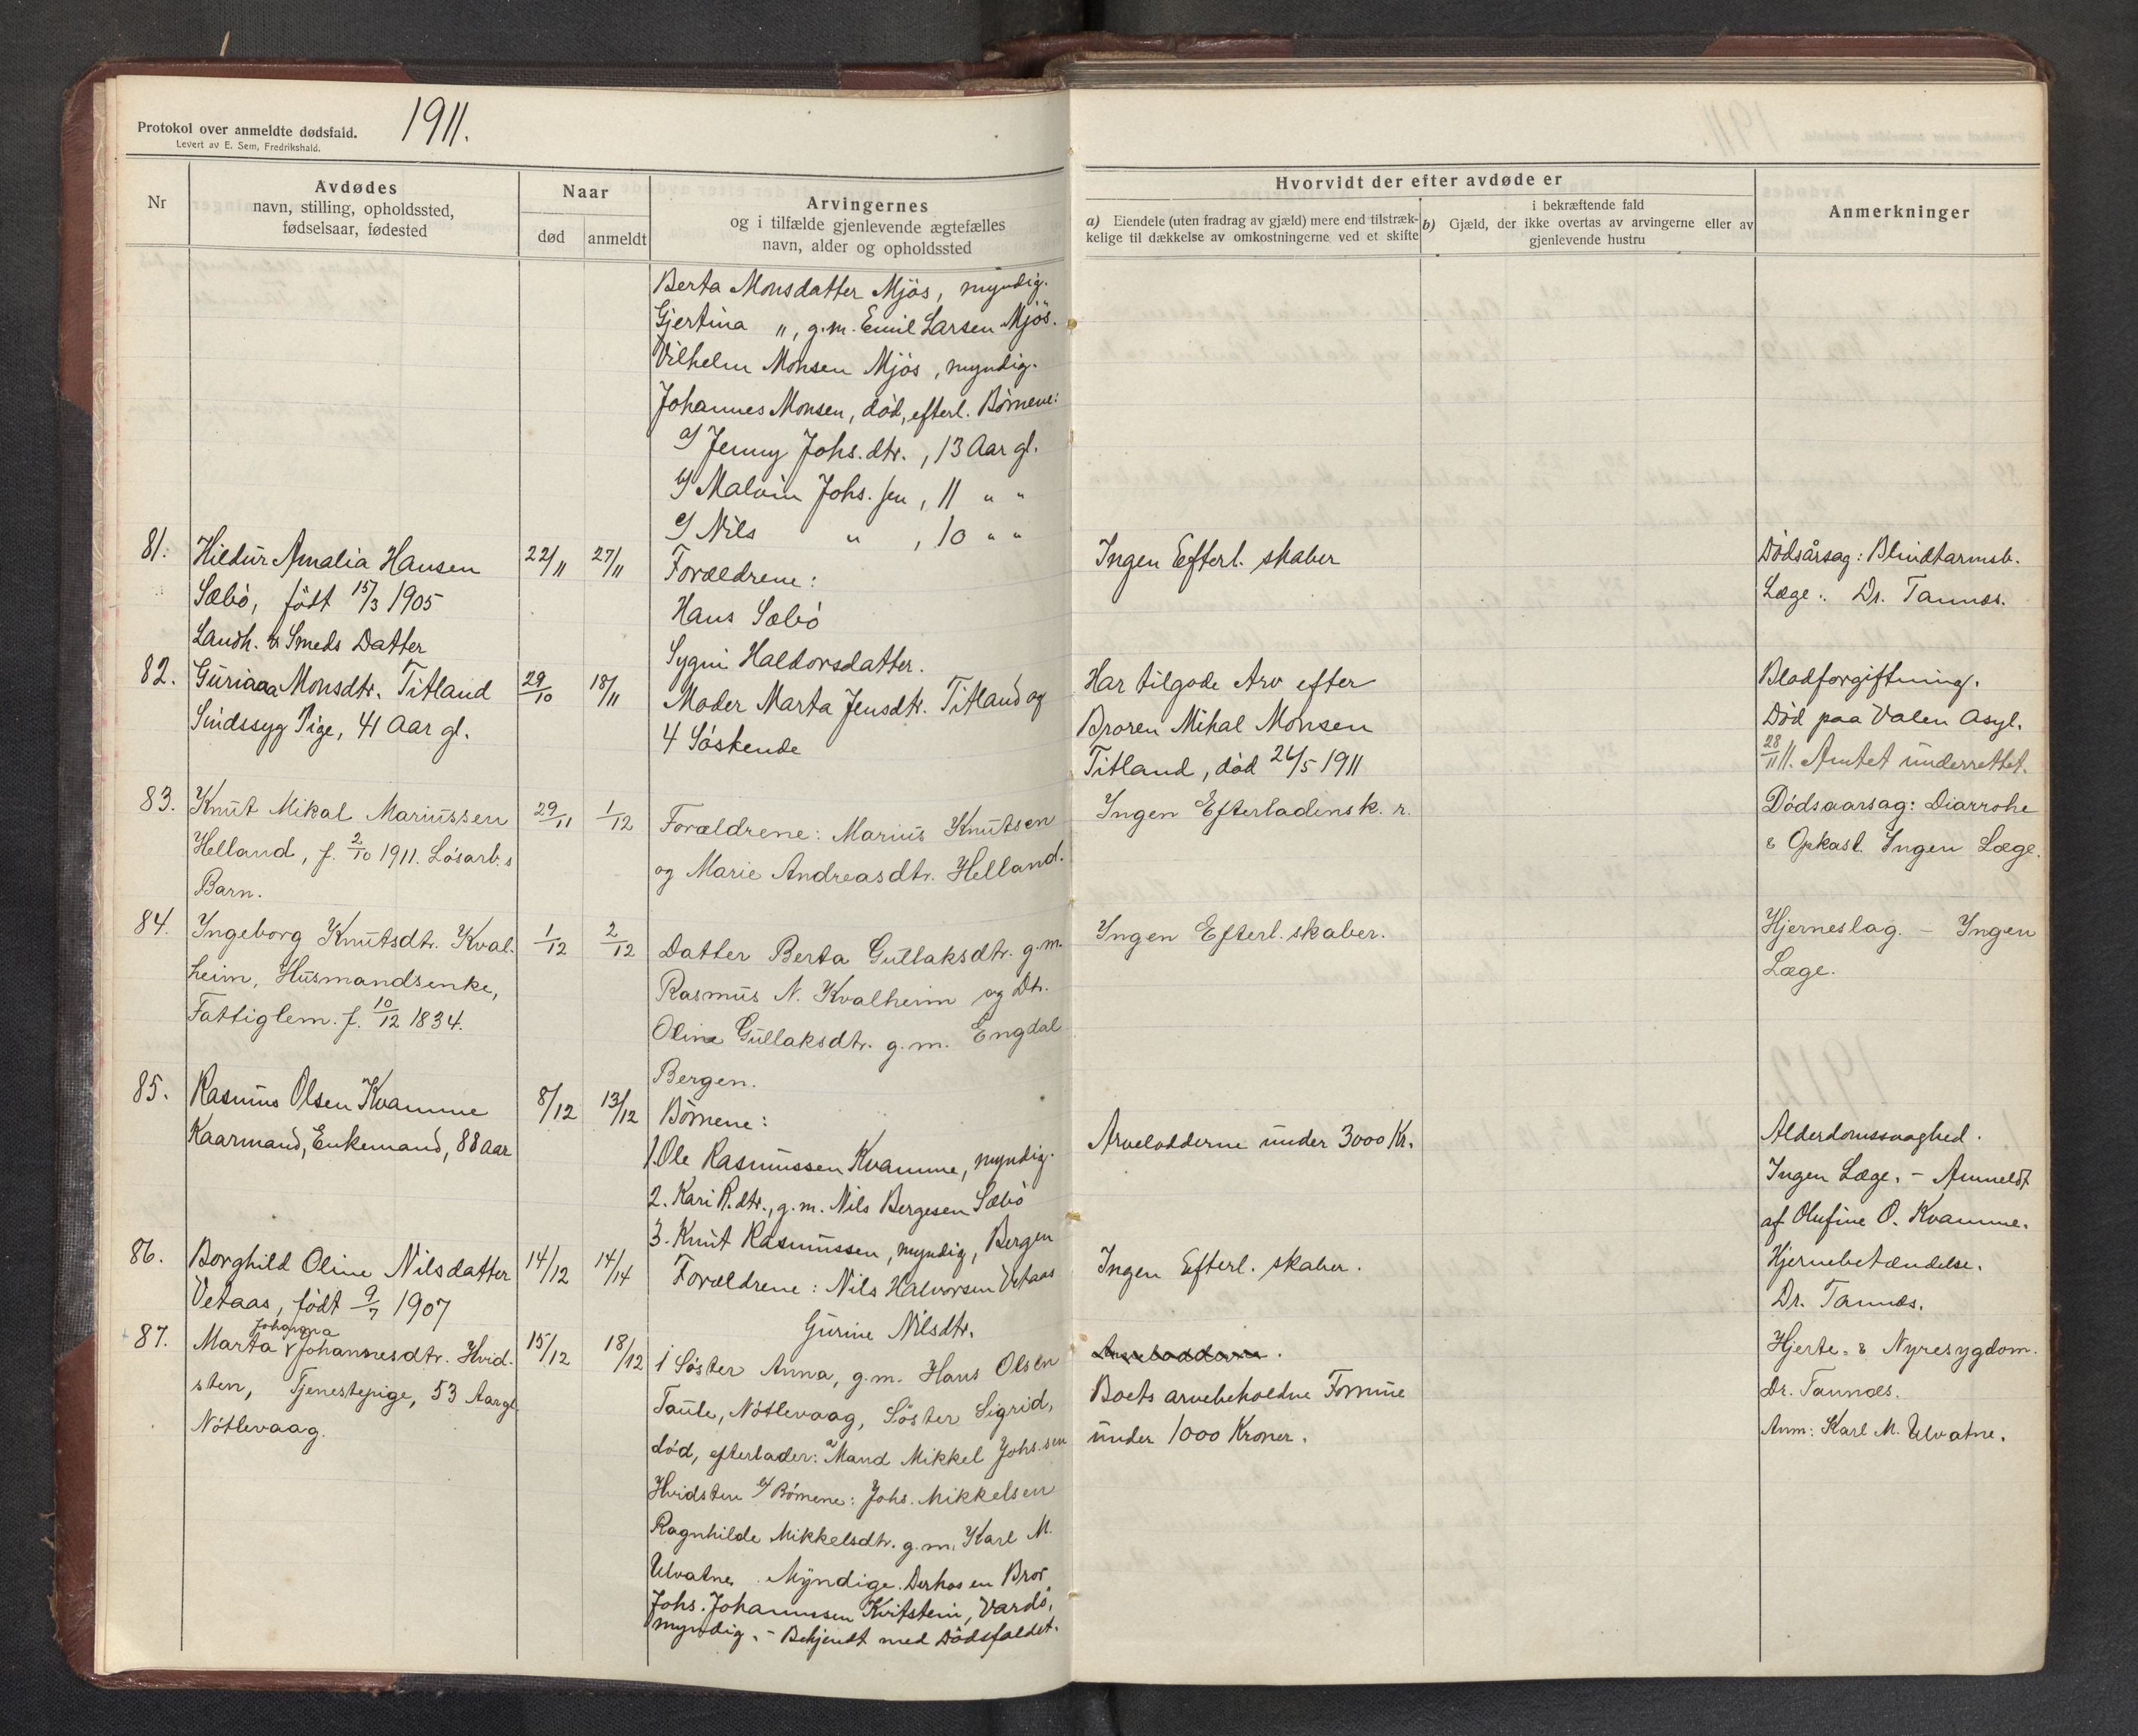 1911.
Protokol over anmeldte dødsfald.
Levert av E. Sem, Fredrikshald.
Nr
Avdødes
navn, stilling, opholdssted,
fødselsaar, fødested
Naar
død
anmeldt
Arvingernes
og i tilfælde gjenlevende ægtefælles
navn, alder og opholdssted
Hvorvidt der efter avdøde er
a) Eiendele (uten fradrag av gjæld) mere end tilstræk-
kelige til dækkelse av omkostningerne ved et skifte
i bekræftende fald
b) Gjæld, der ikke overtas av arvingerne eller av
gjenlevende hustru
Anmerkninger
Berta Monsdatter Mjös, myndig.
Gjertina ", g.m. Emil Larsen Mjös.
Vilhelm Monsen Mjös, myndig.
Johannes Monsen, död, efterl. Börnene:
a/ Jenny Johs.dtr., 13 Aar gl.
b/ Malvin Johs.sen, 11 " "
c/ Nils " , 10 " "
81.
Hildur Amalia Hansen
Sæbö, födt 15/3 1905
Landh. & Smeds Datter
22/11
27/11
Forældrene:
Hans Sæbö
Sygni Haldorsdatter.
Ingen Efterl. skaber
Dödsårsag: Blindtarmsb.
Læge: Dr. Tannæs.
82.
Guriaaa Monsdtr. Titland
Sindssyg Pige, 41 Aar gl.
29/10
18/11
Moder Marta Jensdtr. Titland og
4 Söskende
Har tilgode Arv efter
Broren Mikal Monsen
Titland, död 26/5 1911
Blodforgiftning.
Död paa Valen Asyl.
28/11 11. Amtet underrettet.
83.
Knut Mikal Mariussen
Helland, f. 2/10 1911. Lösarb.s
Barn.
29/11
1/12
Forældrene: Marius Knutsen
og Marie Andreasdtr. Helland.
Ingen Efterladensk. r.
Dödsaarsag: Diarrohe
& Opkast. Ingen Læge.
84.
Ingeborg Knutsdtr. Kval-
heim, Husmandsenke,
Fattiglem. f. 10/12 1834.
1/12
2/12
Datter Berta Gullaksdtr. g.m.
Rasmus N. Kvalheim og Dtr.
Oline Gullaksdtr. g.m. Engdal
Bergen.
Ingen Efterl. skaber.
Hjerneslag. - Ingen
Læge.
85.
Rasmus Olsen Kvamme
Kaarmand, Enkemand, 88 Aar
8/12
13/12
Börnene:
1. Ole Rasmussen Kvamme, myndig.
2. Kari R.dtr., g.m. Nils Bergesen Sæbö
3. Knut Rasmussen, myndig, Bergen
Arvelodderne under 3000 Kr.
Alderdomssvaghed.
Ingen Læge. - Anmeldt
af Olufine O. Kvamme.
86.
Borghild Oline Nilsdatter
Vetaas, födt 9/7 1907
14/12
14/14
Forældrene: Nils Halvorsen Vetaas
Gurine Nilsdtr.
Ingen Efterl. skaber.
Hjernebetændelse.
Dr. Tannæs.
87.
Johanna
Marta Johannesdtr. Hvid-
sten, Tjenestepige, 53 Aar gl.
Nötlevaag.
15/12
18/12
1 Söster Anna, g.m. Hans Olsen
Taule, Nötlevaag, Söster Sigrid,
död, efterlader: a/ Mand Mikkel Johs.sen
Hvidsten b/ Börnene: Johs. Mikkelsen
Ragnhilde Mikkelsdtr. g.m. Karl M.
Ulvatne. Myndige. Derhos en Bror
Johs. Johannessen Kvitstein, Vardö,
myndig. - Bekjendt med Dödsfaldet.
Arvelodderne.
Boets arvebeholdne Formue
under 1000 Kroner.
Hjerte- & Nyresygdom.
Dr. Tannæs.
Anm: Karl M. Ulvatne.